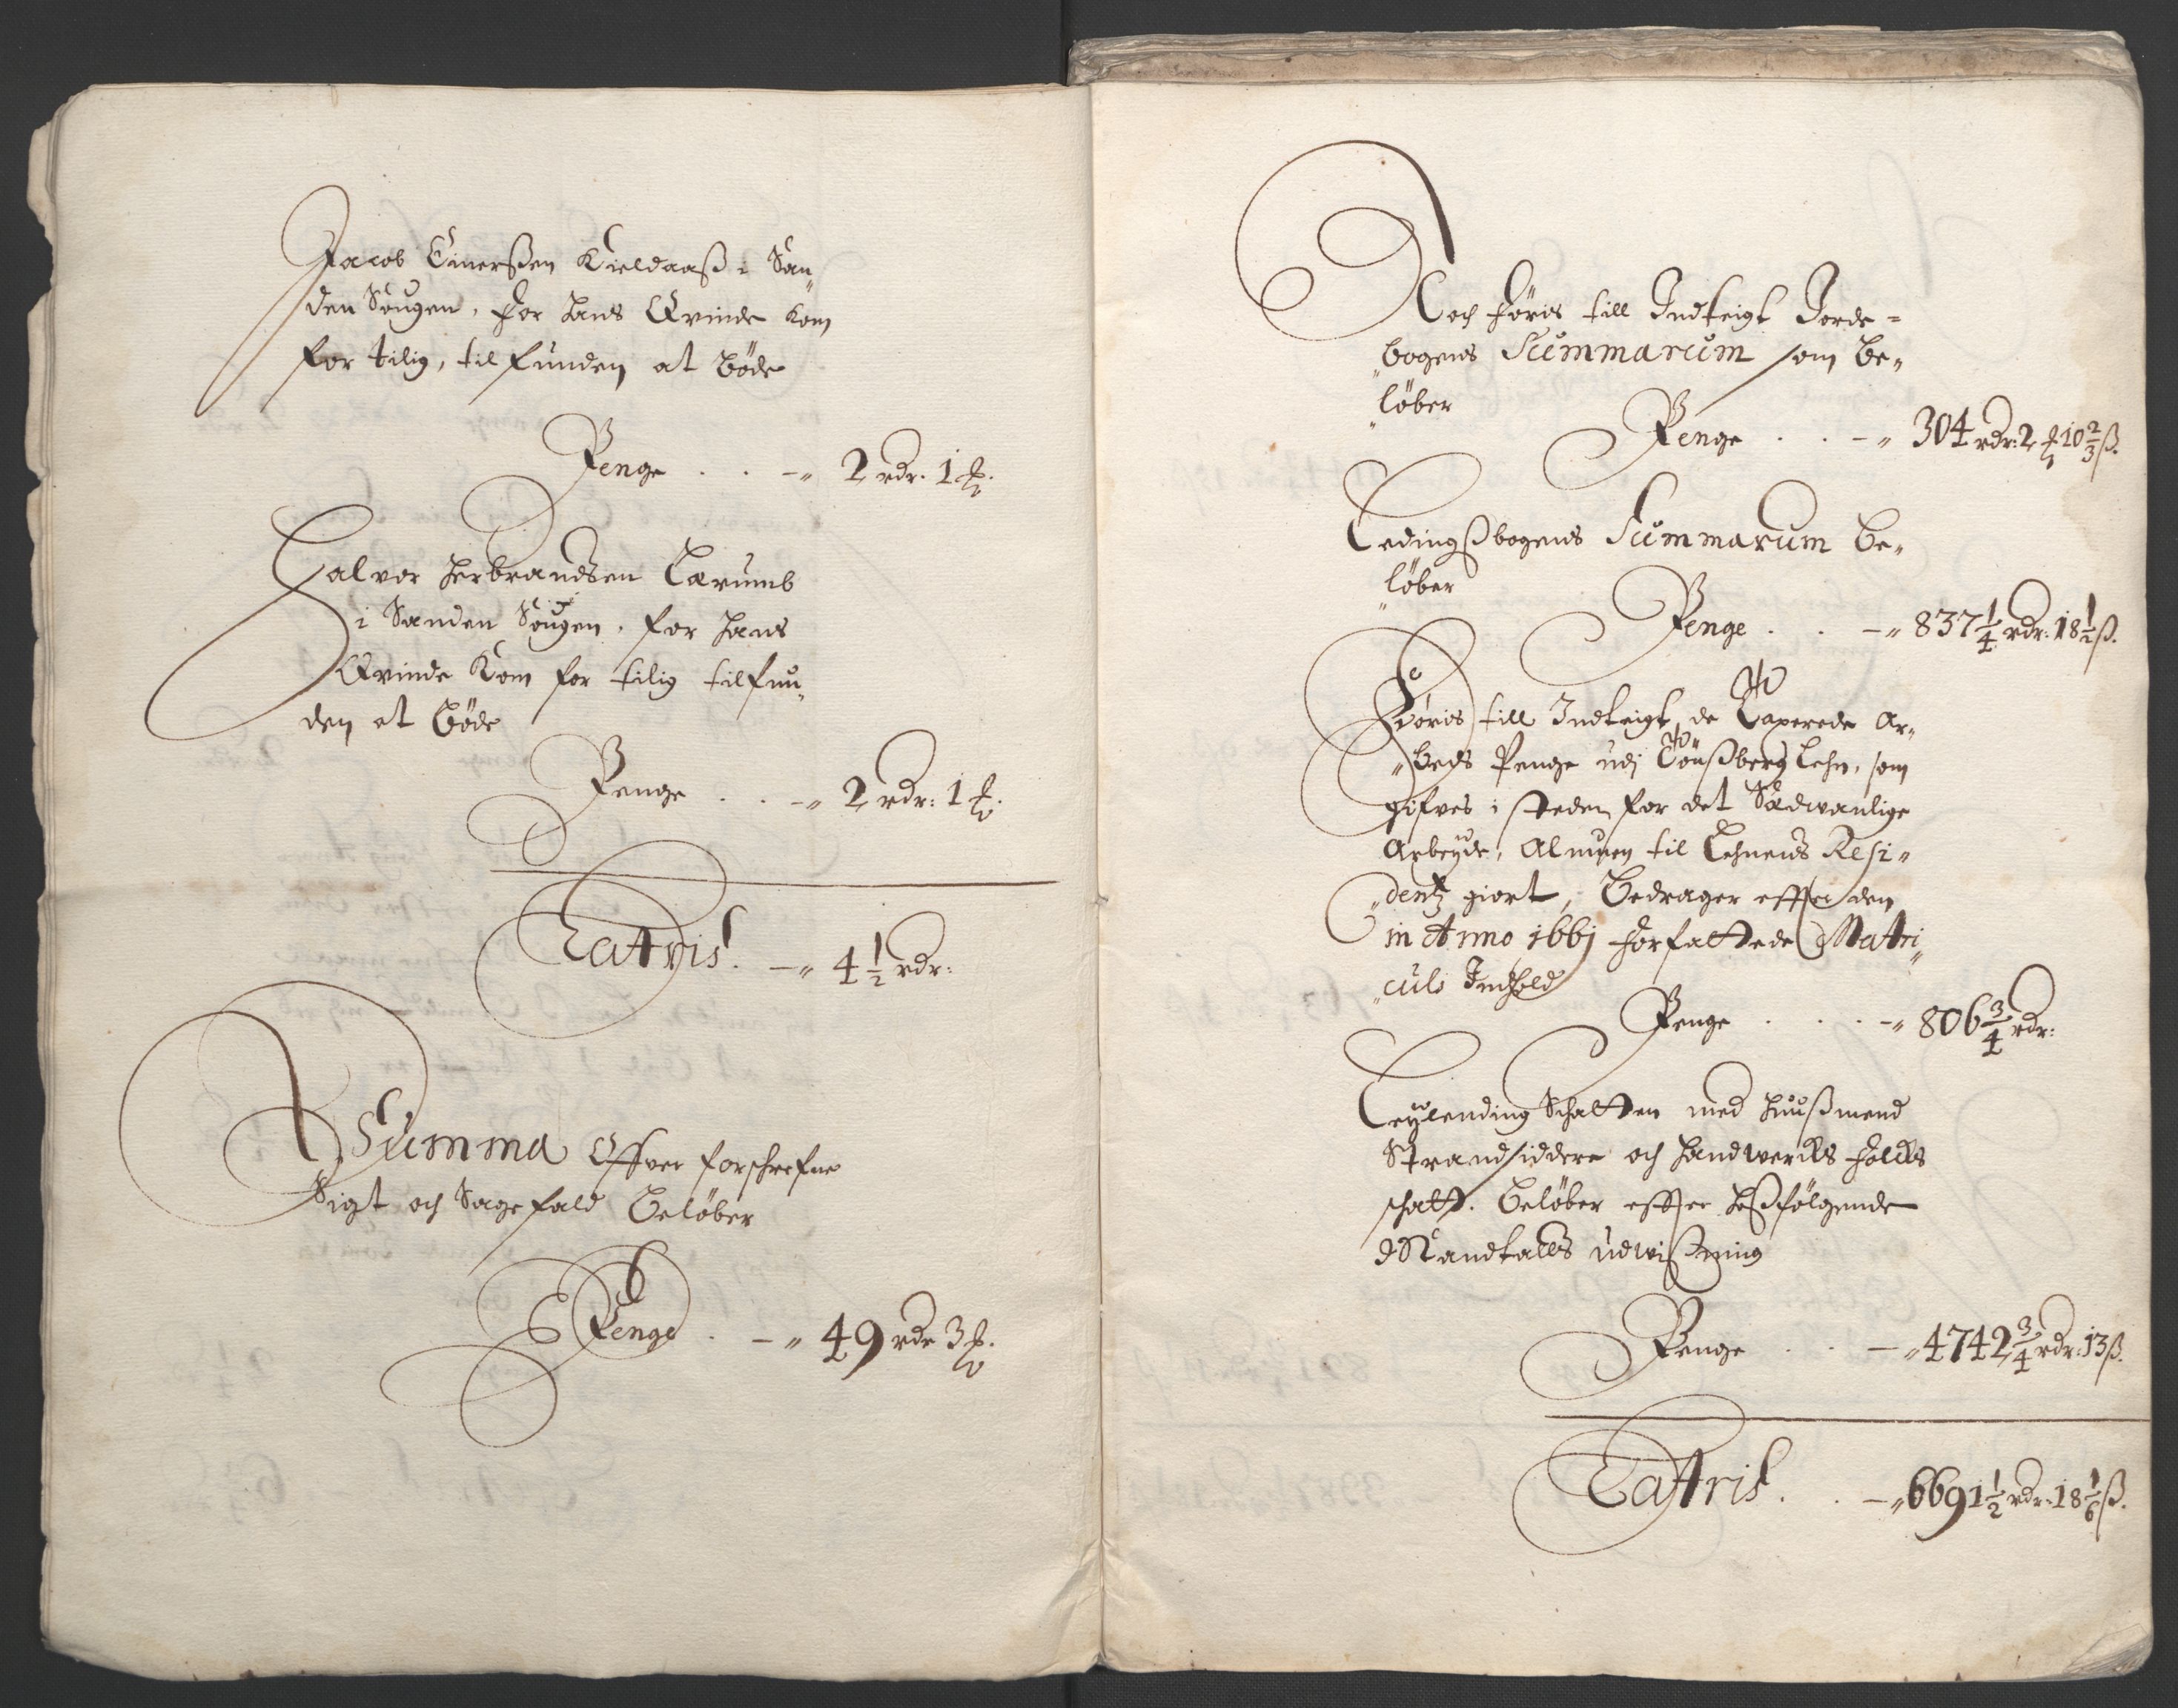 Jacob Einerßen Kieldaaß i San„
den Sougen, for hans Qvinde kom
for tilig, tilfunden at böde
Penge . . –„ 2 rdr. 1 ℔.
Halvor Herbrandsen Berumb
i Sanden Sougen, for hans
Qvinde kom for tilig tilfun„
den at böde
Penge . . –„ 2 rdr: 1 ℔.
Latris. –„ 4 1/2 rdr:
Summa offver forschrefne
Sigt och Sagefald belöber
Penge . –„ 49 rdr 3 ℔.
Noch föris till Indteigt Jorde=
„bogens Summarum som be„
„löber
Penge . . –„ 304 rdr: 2 ℔ 10 2/3 ß.
Ledingßbogens Summarum be„
„löber
Penge . . –„ 837 1/4 rdr: 18 1/2 ß.
Föris till Indteigt de Taxerede Ar„
„beds Penge udj Tönßberg Lehn, som
gifves i steden for det Sædwanlige
Arbeyde, Almuen til Lehnens Resi„
„dentz giort, bedrager effter den
in Anno 1661 forfattede Matri„
„culs Indhold
Penge . . . –„ 806 3/4 rdr:
Leylending Schatten med Huußmend
Strandsiddere och Handwercks folcks
schatt. belöber effter hoßfölgende
Mandtalls udwißning
Penge . . –„ 4742 3/4 rdr: 13 ß.
Latris. . –„ 6691 1/2 rdr: 18 1/6 ß.